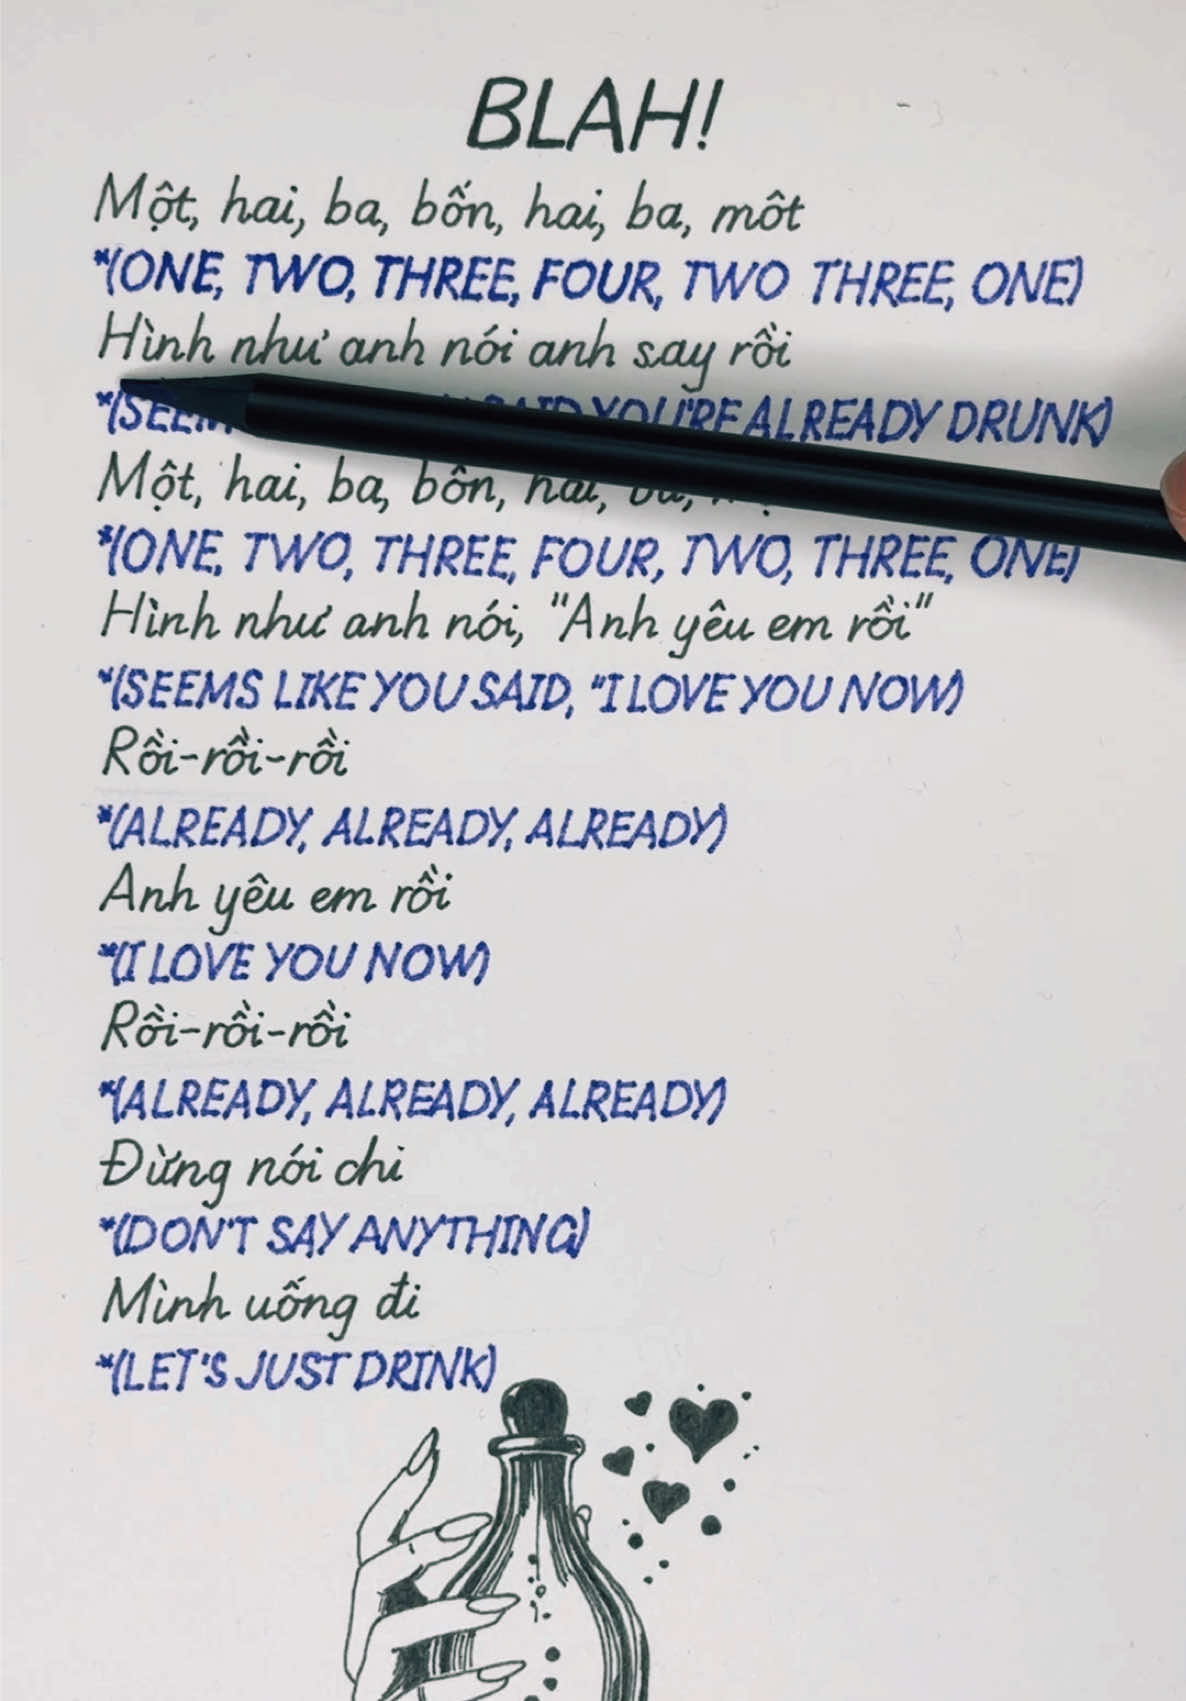 BLAH!
Một, hai, ba, bốn, hai, ba, môt
*(ONE, TWO, THREE, FOUR, TWO THREE, ONE)
Hình như anh nói anh say rồi
*( YOU'RE ALREADY DRUNK)
Một, hai, ba, bôn, hai,
*(ONE, TWO, THREE, FOUR, TWO, THREE, ONE)
Hình như anh nói, "Anh yêu em rồi"
*(SEEMS LIKE YOU SAID, "I LOVE YOU NOW)
Rồi-rồi-rồi
*(ALREADY, ALREADY, ALREADY)
Anh yêu em rồi
*(I LOVE YOU NOW)
Rồi-rồi-rồi
*(ALREADY, ALREADY, ALREADY)
Đừng nói chi
*(DON'T SAY ANYTHING)
Mình uống đi
*(LET'S JUST DRINK)